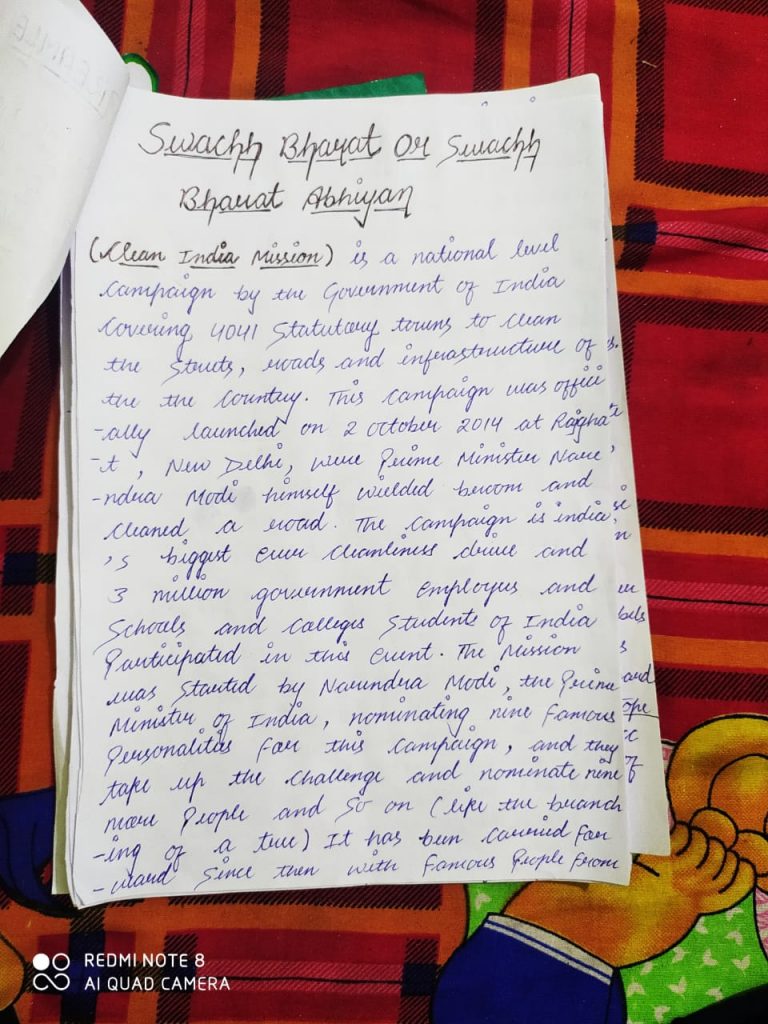 Swachh Bharat Or Swachh
Bharat Abhiyan
(Clean India Mission) is a national level
Campaign by the Government of India
Covering 4041 Statutory towns to clean
the Streets, roads and infrastructure of
the the Country. This Campaign was offici
-ally launched on 2 october 2014 at Rajgha
-t, New Delhi, were Prime Minister Nare
-ndra Modi himself wielded broom and
cleaned a road. The campaign is india
's biggest ever cleanliness drive and
3 million government employees and
Schools and Colleges Students of India
Participated in this event. The Mission
was Started by Narendra Modi, the Prime
Minister of India, nominating nine famous
Personalities for this Campaign, and they
take up the challenge and nominate nine
more People and So on (like the branch
-ing of a tree) It has been carried for
-ward Since then with famous People from
REDMI NOTE 8
AI QUAD CAMERA